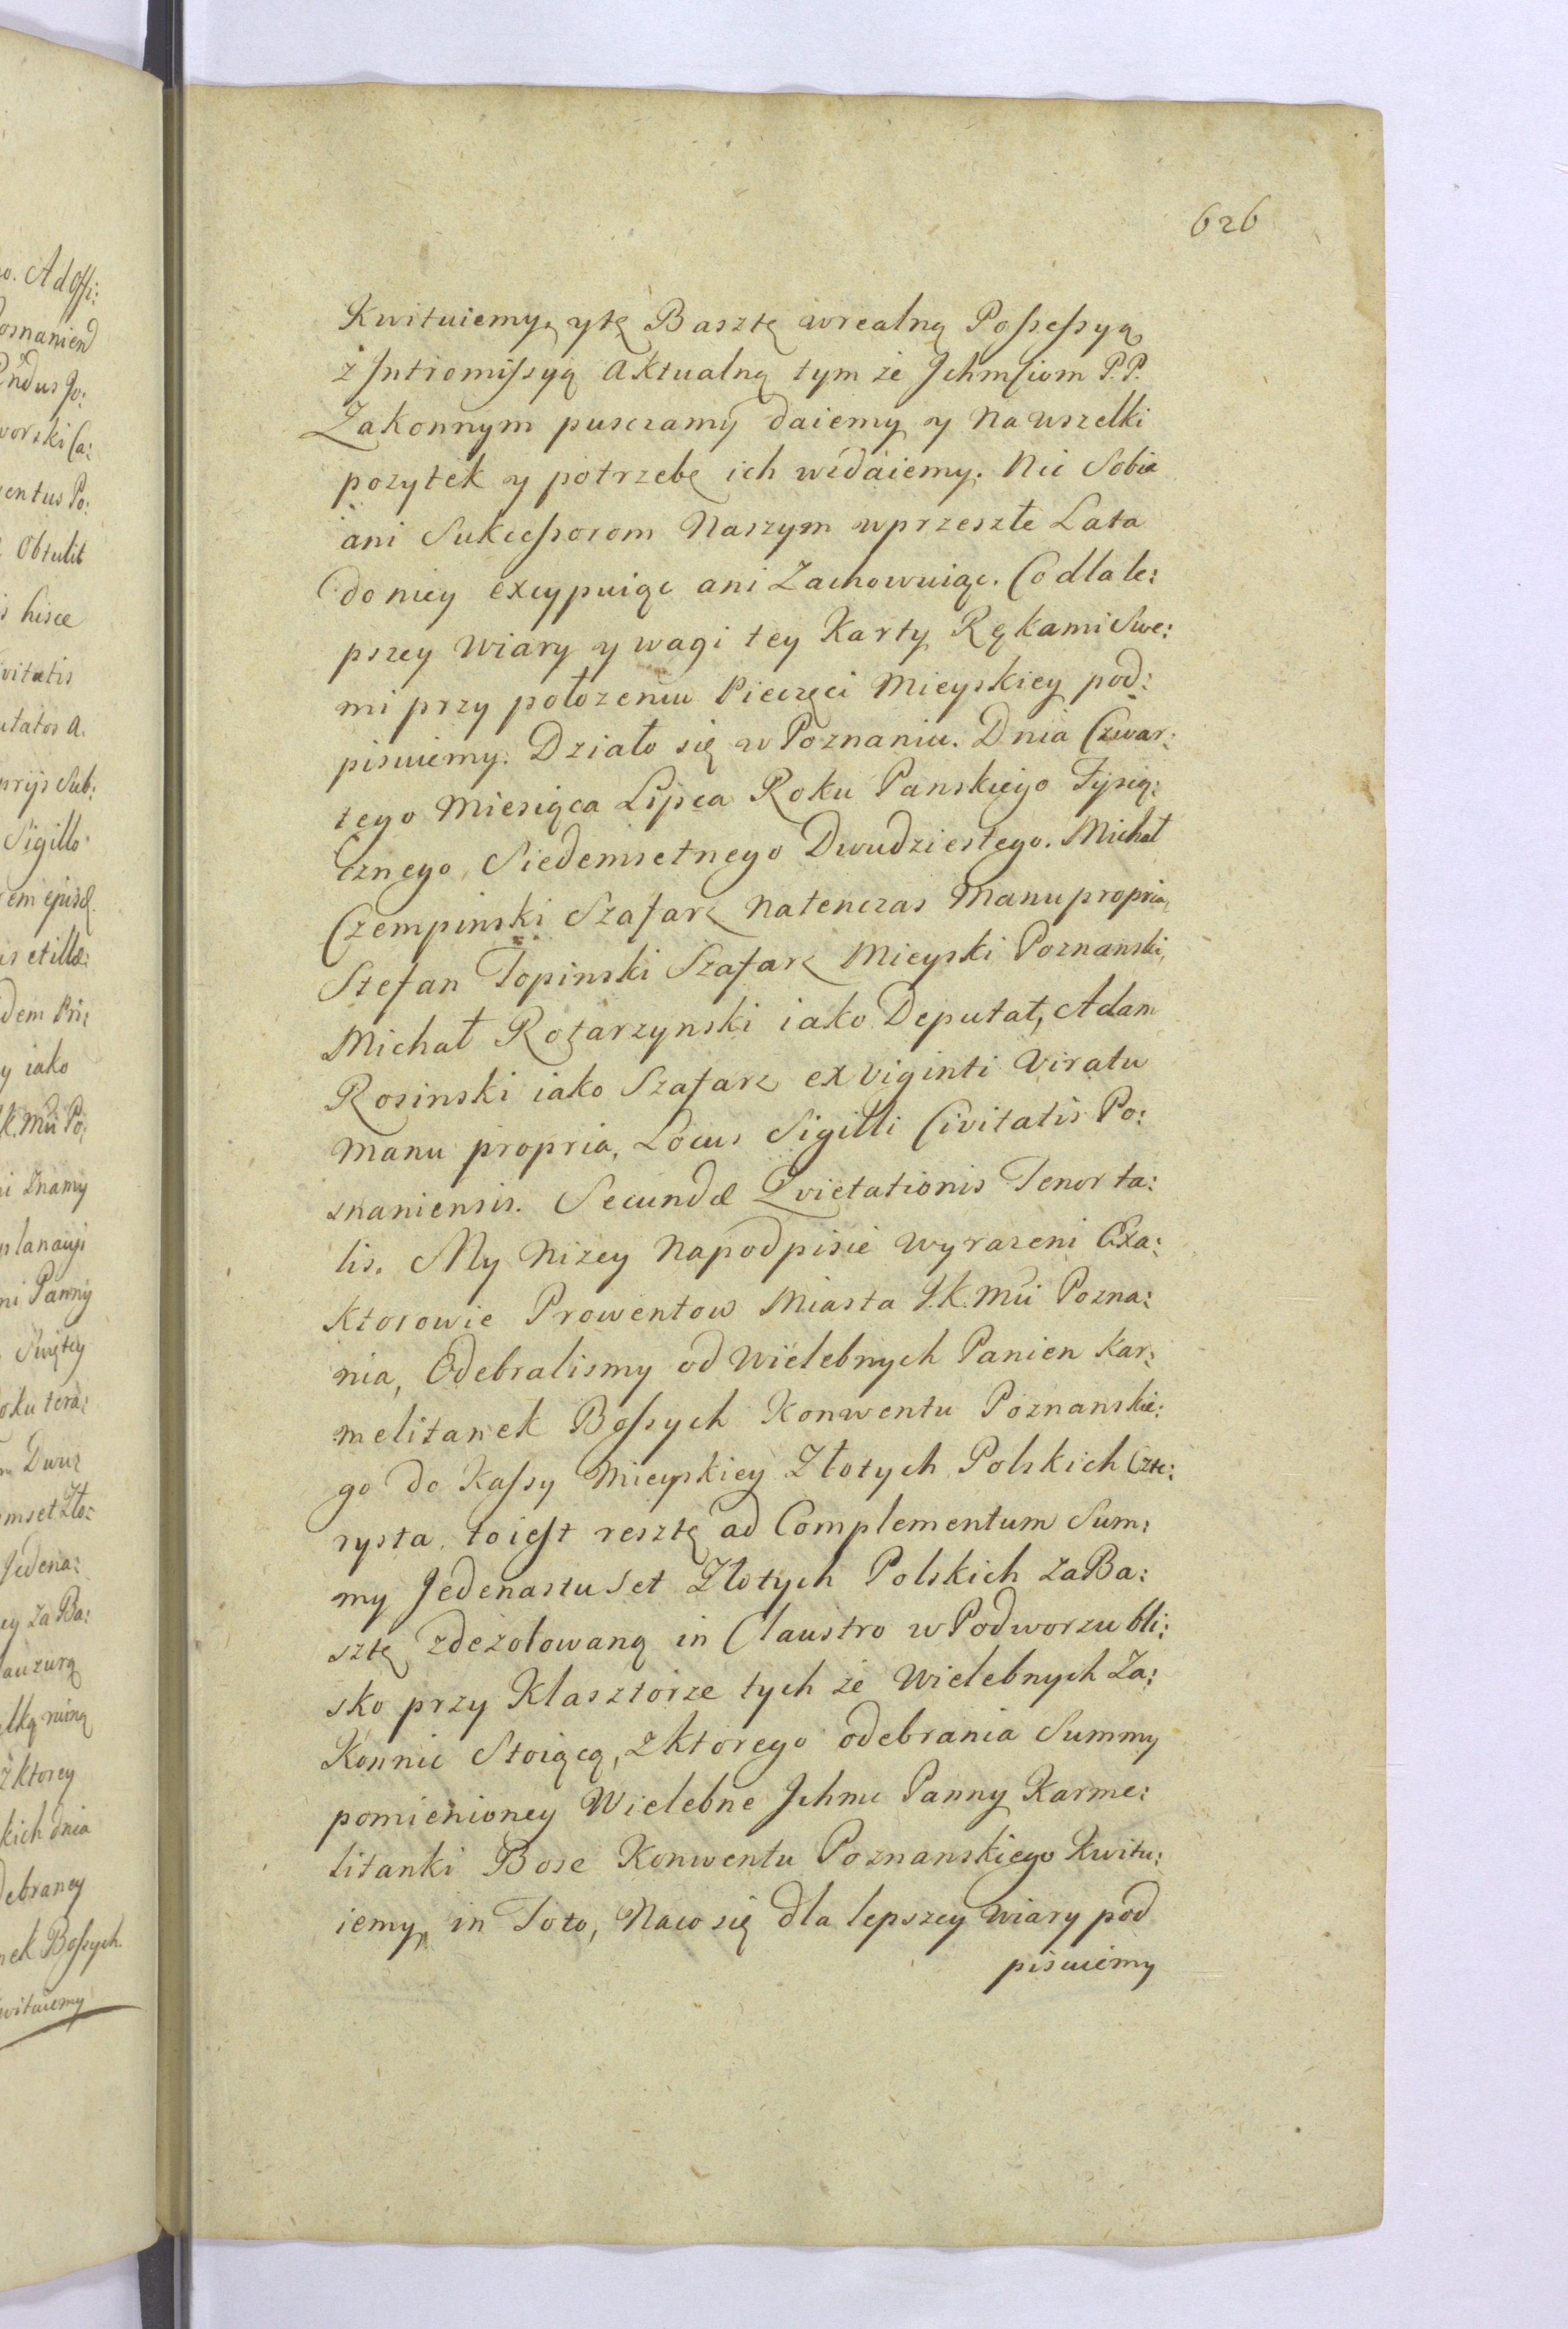 626
Kwituiemy, ytę Basztę wrealną Possessyą
z Intromissyą Aktualną tym że Jchmsciom P.P.
Zakonnym pusczamy daiemy y na wszelki
pozytek y potrzebę ich wzdaiemy. Nic Sobie
ani Sukcessorom Naszym wprzeszłe Lata
do niey excypuiąc ani Zachowuiąc. Co dla le:
pszey Wiary y wagi tey Karty Rękami Swe:
mi przy połozeniu Pieczęci Mieyskiey pod:
pisuiemy. Działo się w Poznaniu. Dnia Czwar:
tego Miesiąca Lipca Roku Panskiego Tysią:
cznego Siedemsetnego Dwudziestego. Michał
Czempinski Szafarz natenczas Manu propria,
Stefan Topinski Szafarz Mieyski Poznanski,
Michał Rozarzynski iako Deputat, Adam
Rosinski iako Szafarz ex viginti Viratu
Manu propria, Locus Sigilli Civitatis Po:
snaniensis. Secundæ Qvietationis Tenor ta:
lis. My Nizey Napodpisie wyrazeni Exa:
ktorowie Prowentow Miasta J.K.Mci Pozna:
nia, Odebralismy od Wielebnych Panien Kar:
melitanek Bossych Konwentu Poznanskie:
go do Kassy Mieyskiey Złotych Polskich Czte:
rysta to iest resztę ad Complementum Sum:
my Jedenastu Set Złotych Polskich za Ba:
sztę zdezolowaną in Claustro w Podworzu bli:
sko przy Klasztorze tych że Wielebnych Za:
Konnic Stoiącą, z ktorego odebrania Summy
pomienioney Wielebne Jchmc Panny Karme:
litanki Bose Konwentu Poznanskiego Kwitu:
iemy, in Toto, Naco się dla lepszey Wiary pod
pisuiemy